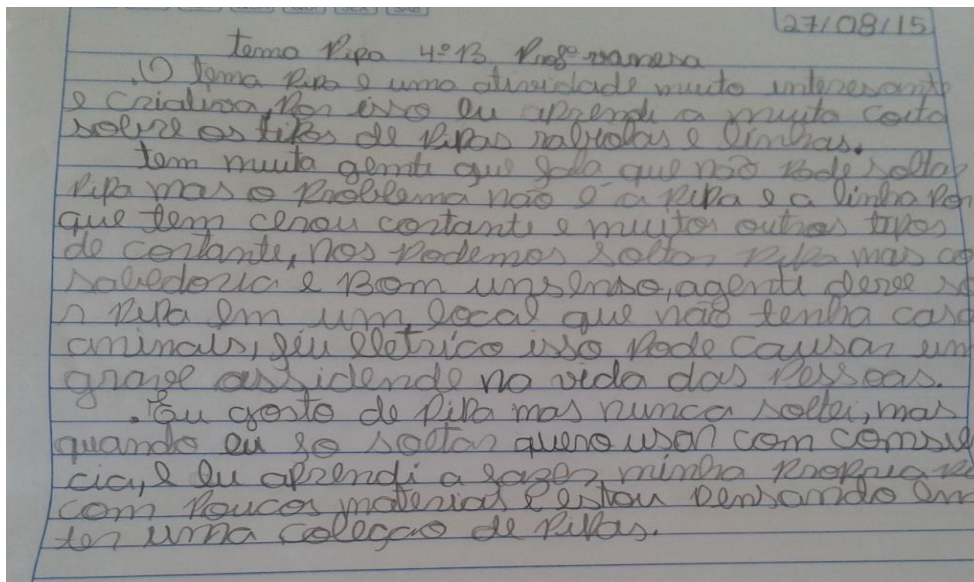 27/08/15
tema Pipa 4º B Profª vanesa
.O tema Pipa e uma atividade muito interesante
e criativa, Por isso eu aprendi a muita coisa
sobre os tipos de Pipas rabiolas e linhas.
tem muita gente que fala que não Pode soltar
Pipa mas o Problema não é a PiPa e a linha Por
que tem cerou cortante e muitos outros tipos
de cortante, nos Podemos soltar PiPa mas co
sabedoria e Bom unsenso, agente deve so
r PiPa em um local que não tenha casa
animais, fiu eletrico isso Pode causar um
grave assidende na vida das Pessoas.
. Eu gosto de PiPa mas nunca soltei, mas
quando eu so soltar quero usar com comsie
cia, e eu aPrendi a fazer minha ProPria Pi
com Poucos materias e estou Pensando em
ter uma coleçao de PiPas.